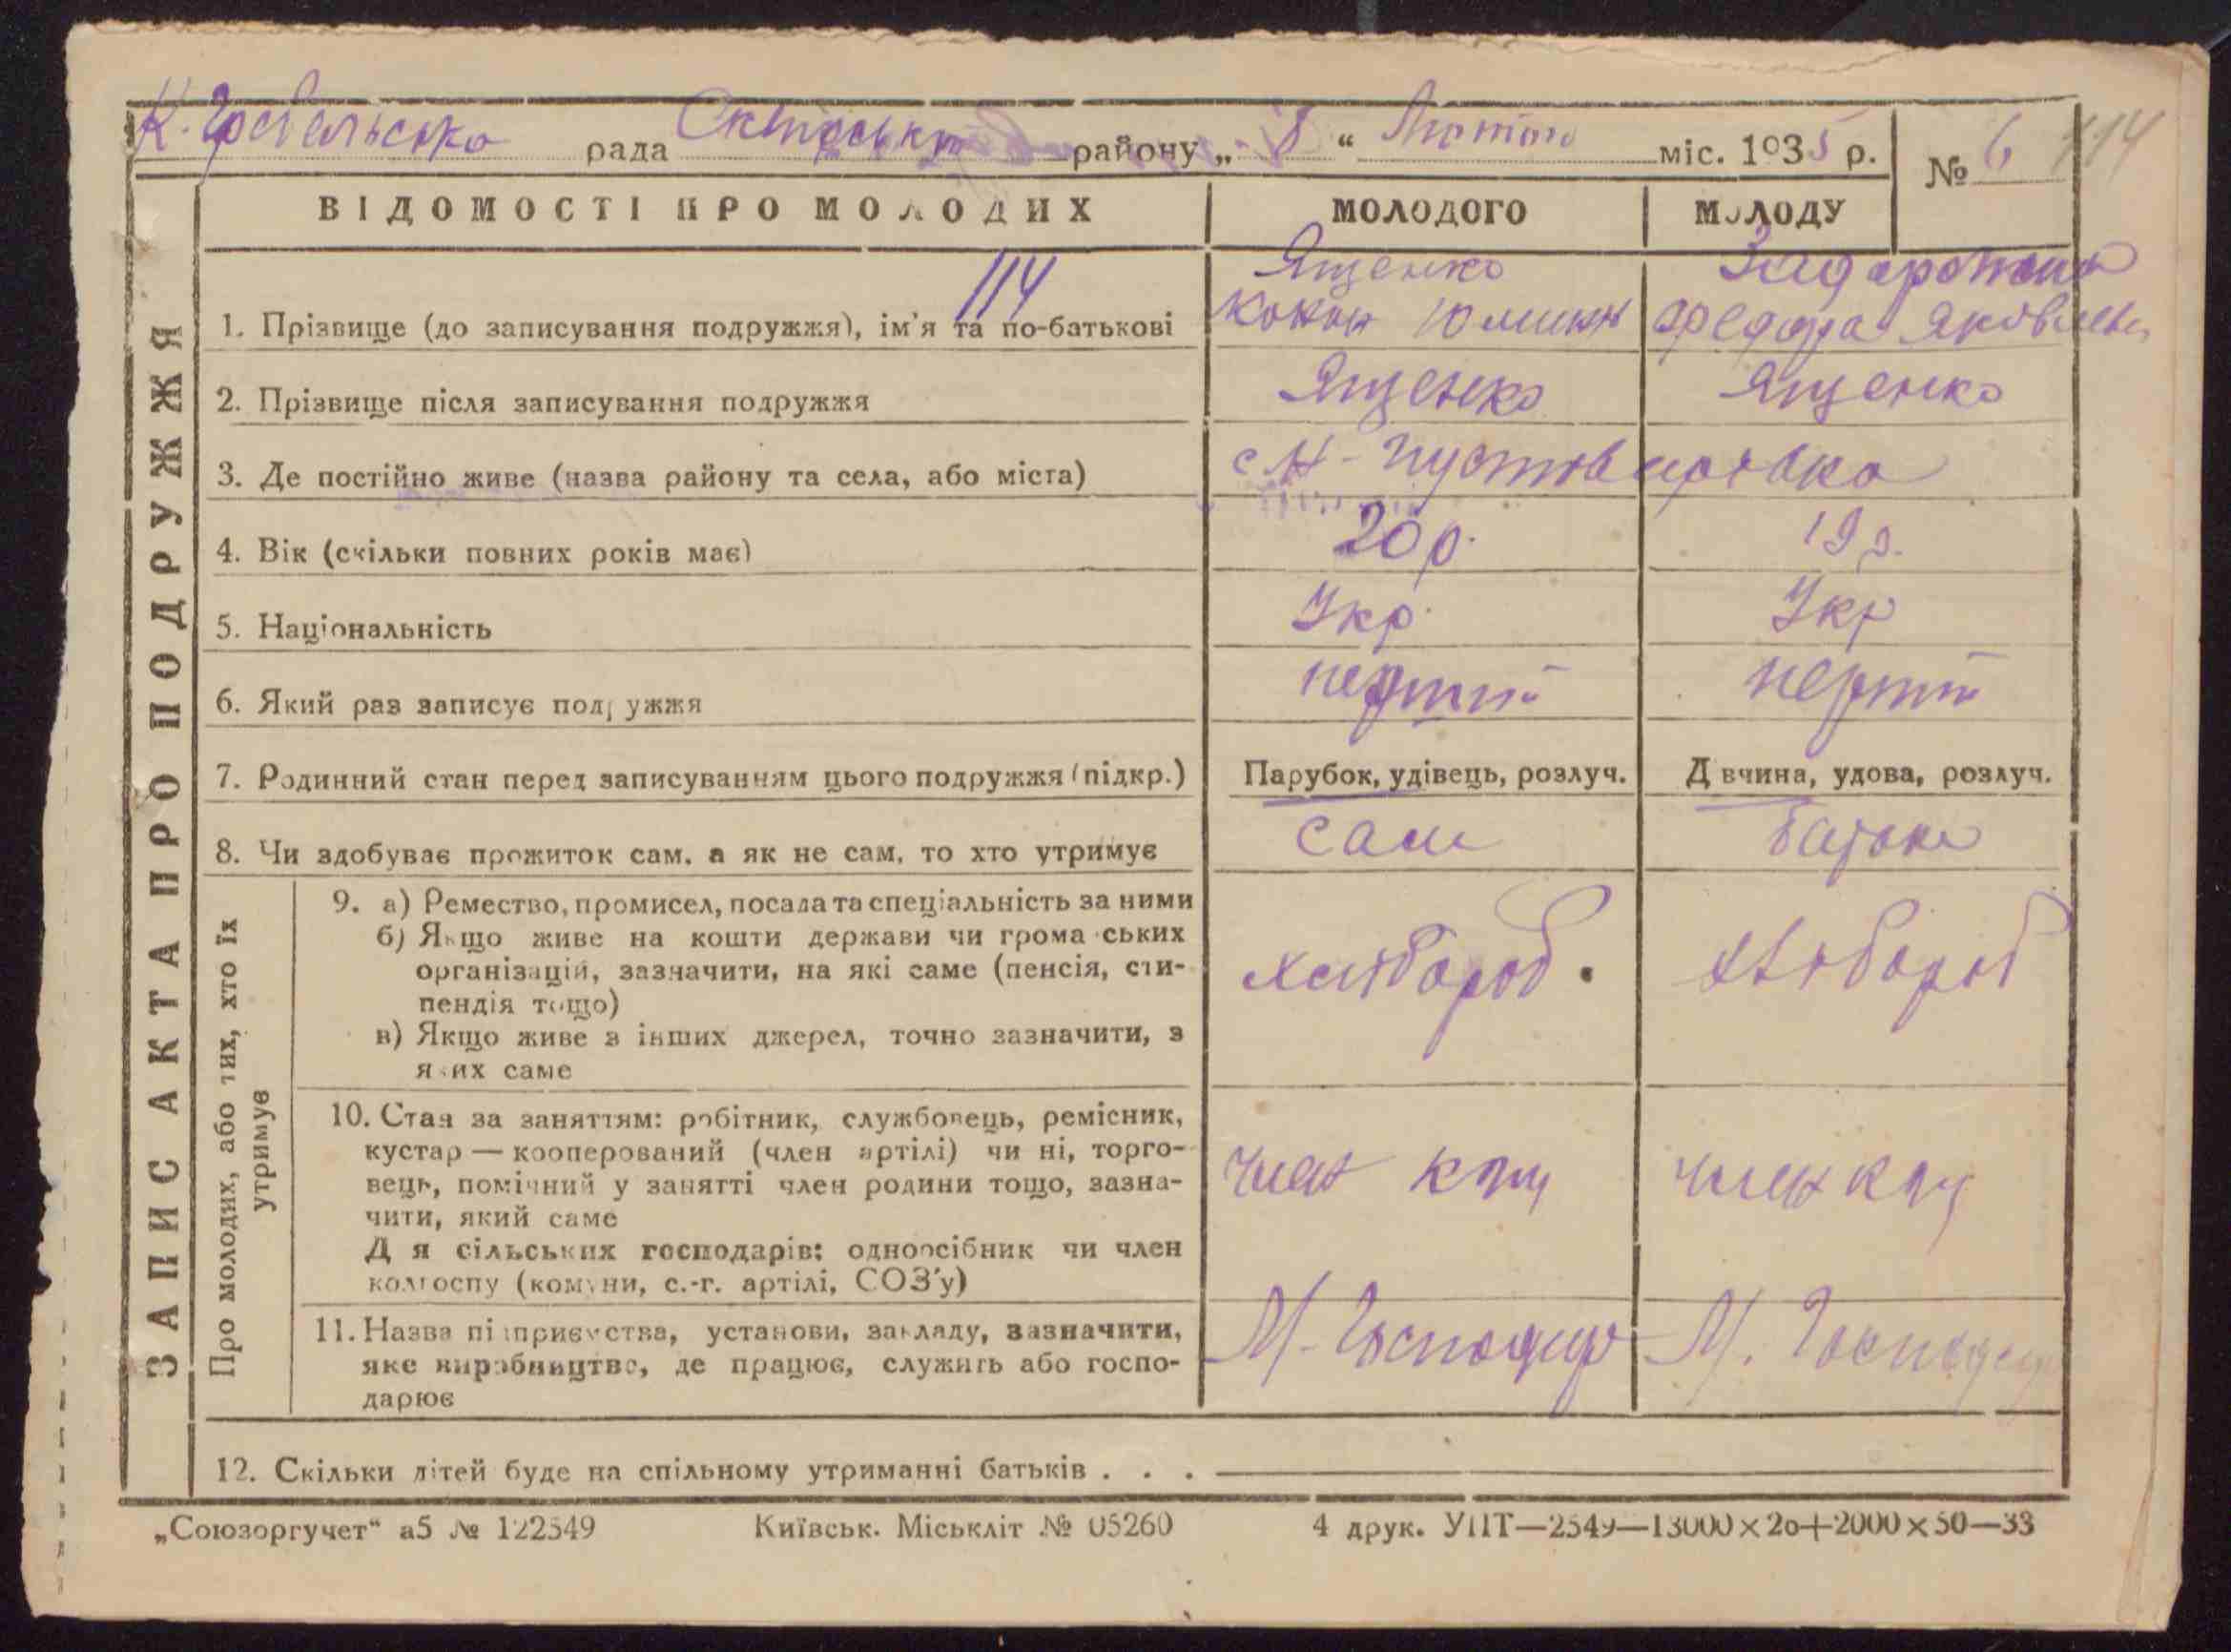 рада району „ 8 “ Лютого міс. 1935 р.
№ 6 114
ВІДОМОСТІ ПРО МОЛОДИХ МОЛОДОГО МОЛОДУ
ЗАПИС АКТА ПРО ПОДРУЖЖЯ
114
Ященко
1. Прізвище (до записування подружжя), ім'я та по-батькові
2. Прізвище після записування подружжя Ященко Ященко
3. Де постійно живе (назва району та села, або міста)
4. Вік (скільки повних років має) 20 р. 19 р.
5. Національність Укр. Укр
6. Який раз записує подружжя перший перший
7. Родинний стан перед записуванням цього подружжя (підкр.) Парубок, удівець, розлуч. Дівчина, удова, розлуч.
8. Чи здобуває прожиток сам, а як не сам, то хто утримує сам батьки
Про молодих, або тих, хто їх
утримує
9. а) Ремество, промисел, посада та спеціальність за ними
б) Якщо живе на кошти держави чи громадських
організацій, зазначити, на які саме (пенсія, сти-
пендія тощо)
в) Якщо живе з інших джерел, точно зазначити, з
яких саме
хлібороб. хлібороб
10. Стан за заняттям: робітник, службовець, ремісник,
кустар — кооперований (член артілі) чи ні, торго-
вець, помічний у занятті член родини тощо, зазна-
чити, який саме
Для сільських господарів: одноосібник чи член
колгоспу (комуни, с.-г. артілі, СОЗ'у)
член член
11. Назва підприємства, установи, закладу, зазначити,
яке виробництво, де працює, служить або госпо-
дарює
12. Скільки дітей буде на спільному утриманні батьків . . .
„Союзоргучет“ а5 № 122549 Київськ. Міськліт № 05260 4 друк. УПТ—2549—13000×20+2000×50—33